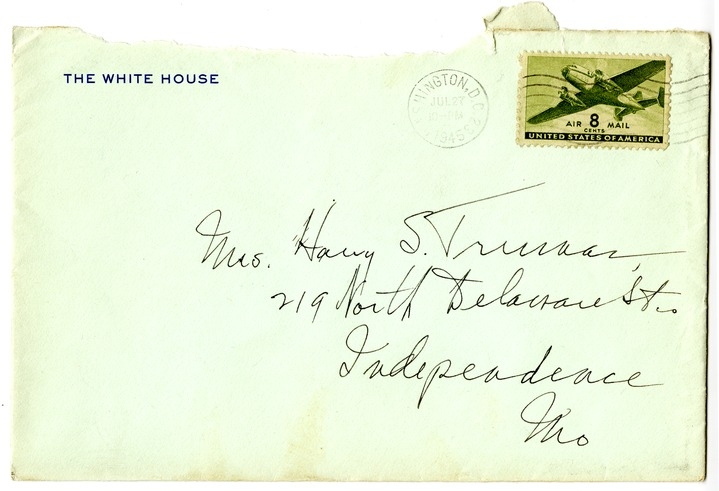 THE WHITE HOUSE
WASHINGTON, D.C.
JUL 27
1945
AIR 8 MAIL
CENTS
UNITED STATES OF AMERICA
Mrs. Harry S. Truman,
219 North Delaware St.
Independence
Mo